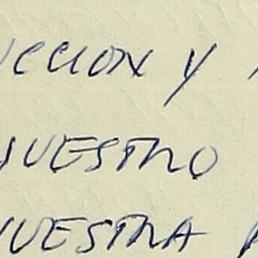 UCCION Y
NUESTRO
NUESTRA